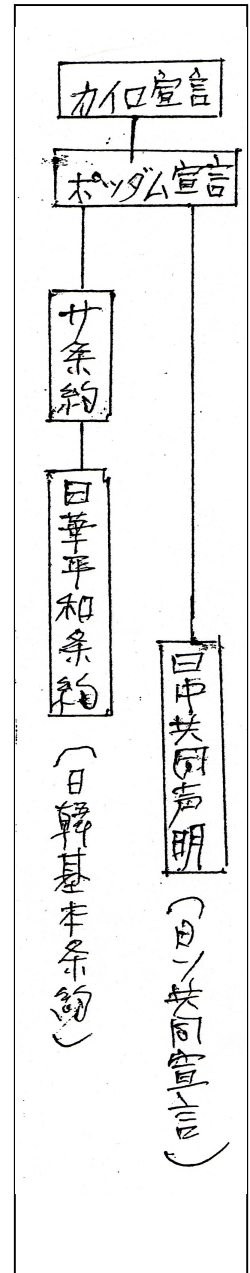 カイロ宣言
ポツダム宣言
サ条約
日華平和条約
(日韓基本条約)
日中共同声明
(日ソ共同宣言)